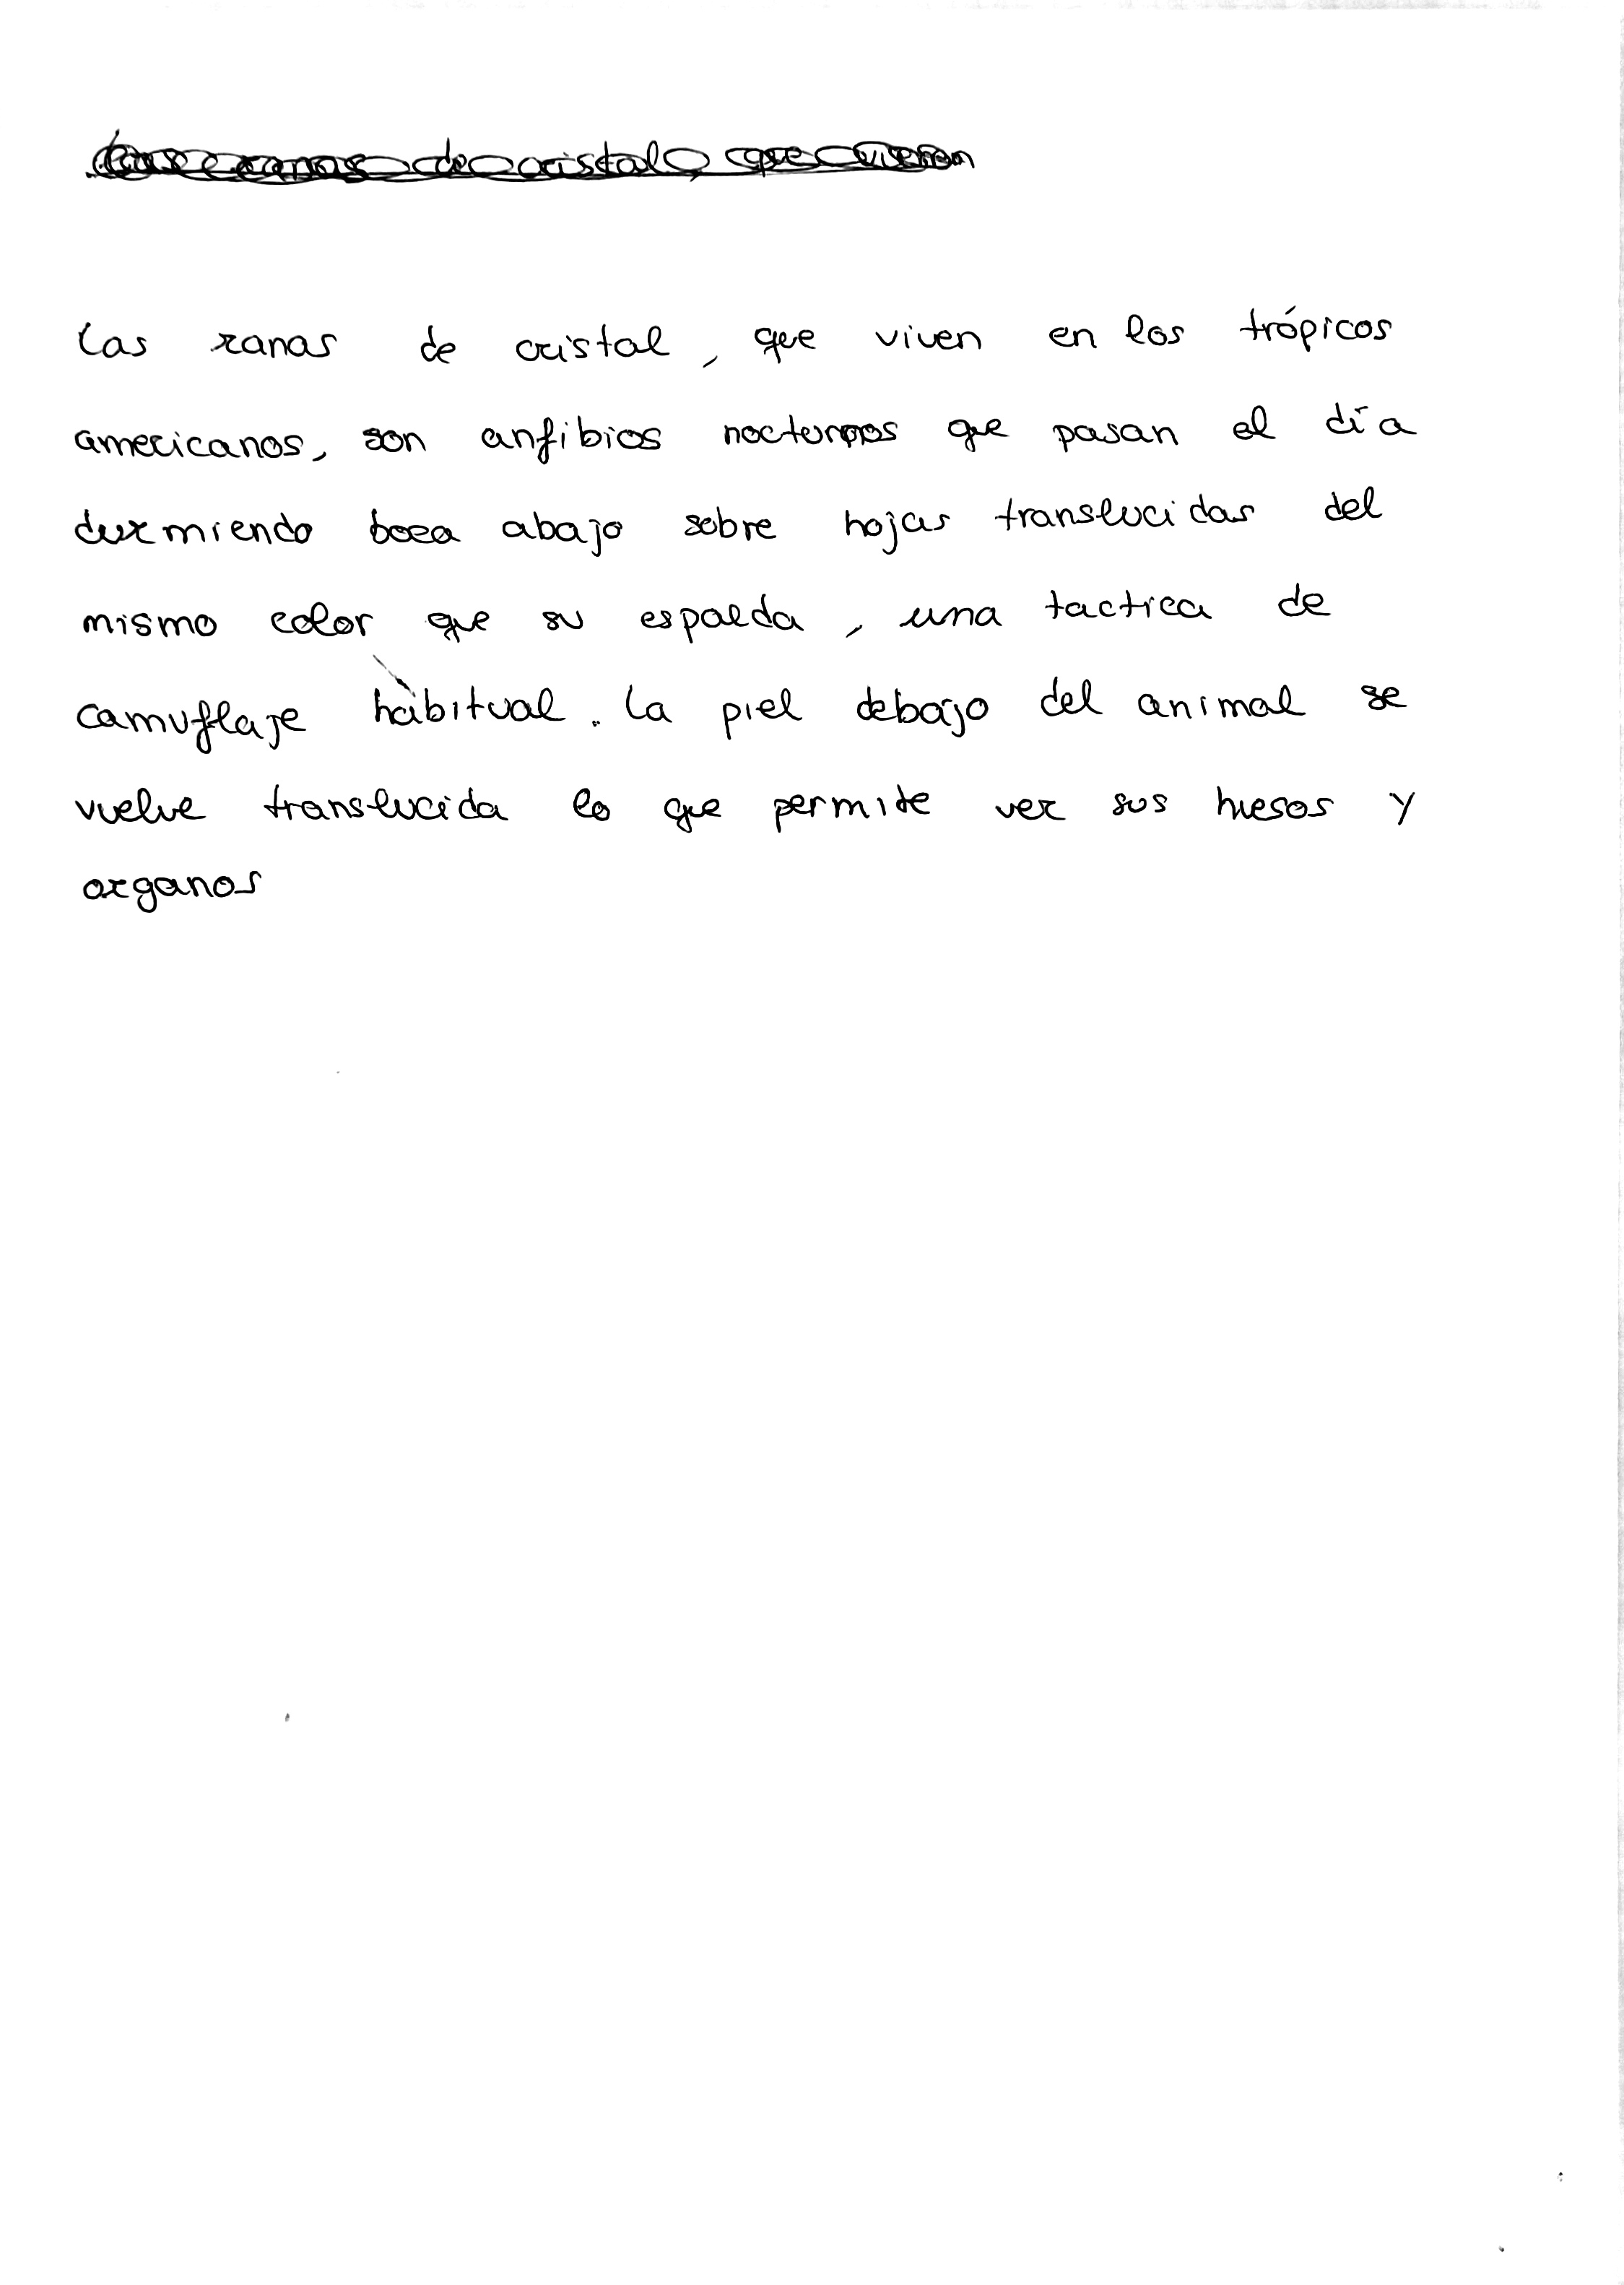 Las ranas de cristal, que viven
Las ranas de cristal, que viven en los trópicos
americanos, son anfibios nocturnos que pasan el día
durmiendo boca abajo sobre hojas translucidas del
mismo color que su espalda, una tactica de
camuflaje habitual. La piel debajo del animal se
vuelve translucida lo que permite ver sus huesos y
organos